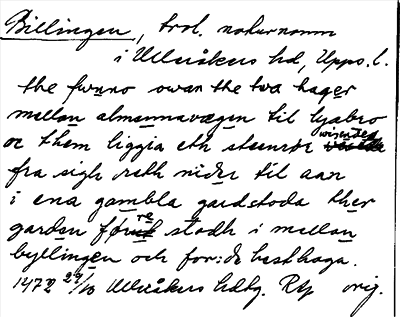 Billingen, trol. naturnamn
i Ulleråkers hd, Upps. l.
the funno owan the twa hager
mellan almannawægen til lyabro
oc them liggia eth steenrør wisendes
fra sigh reth nider til aan
i ena gambla gardstoda ther
garden føre stodh i mellan
byllingen och for:de besthaga.
1472 29/10 Ulleråkers hdtg. RAp orig.